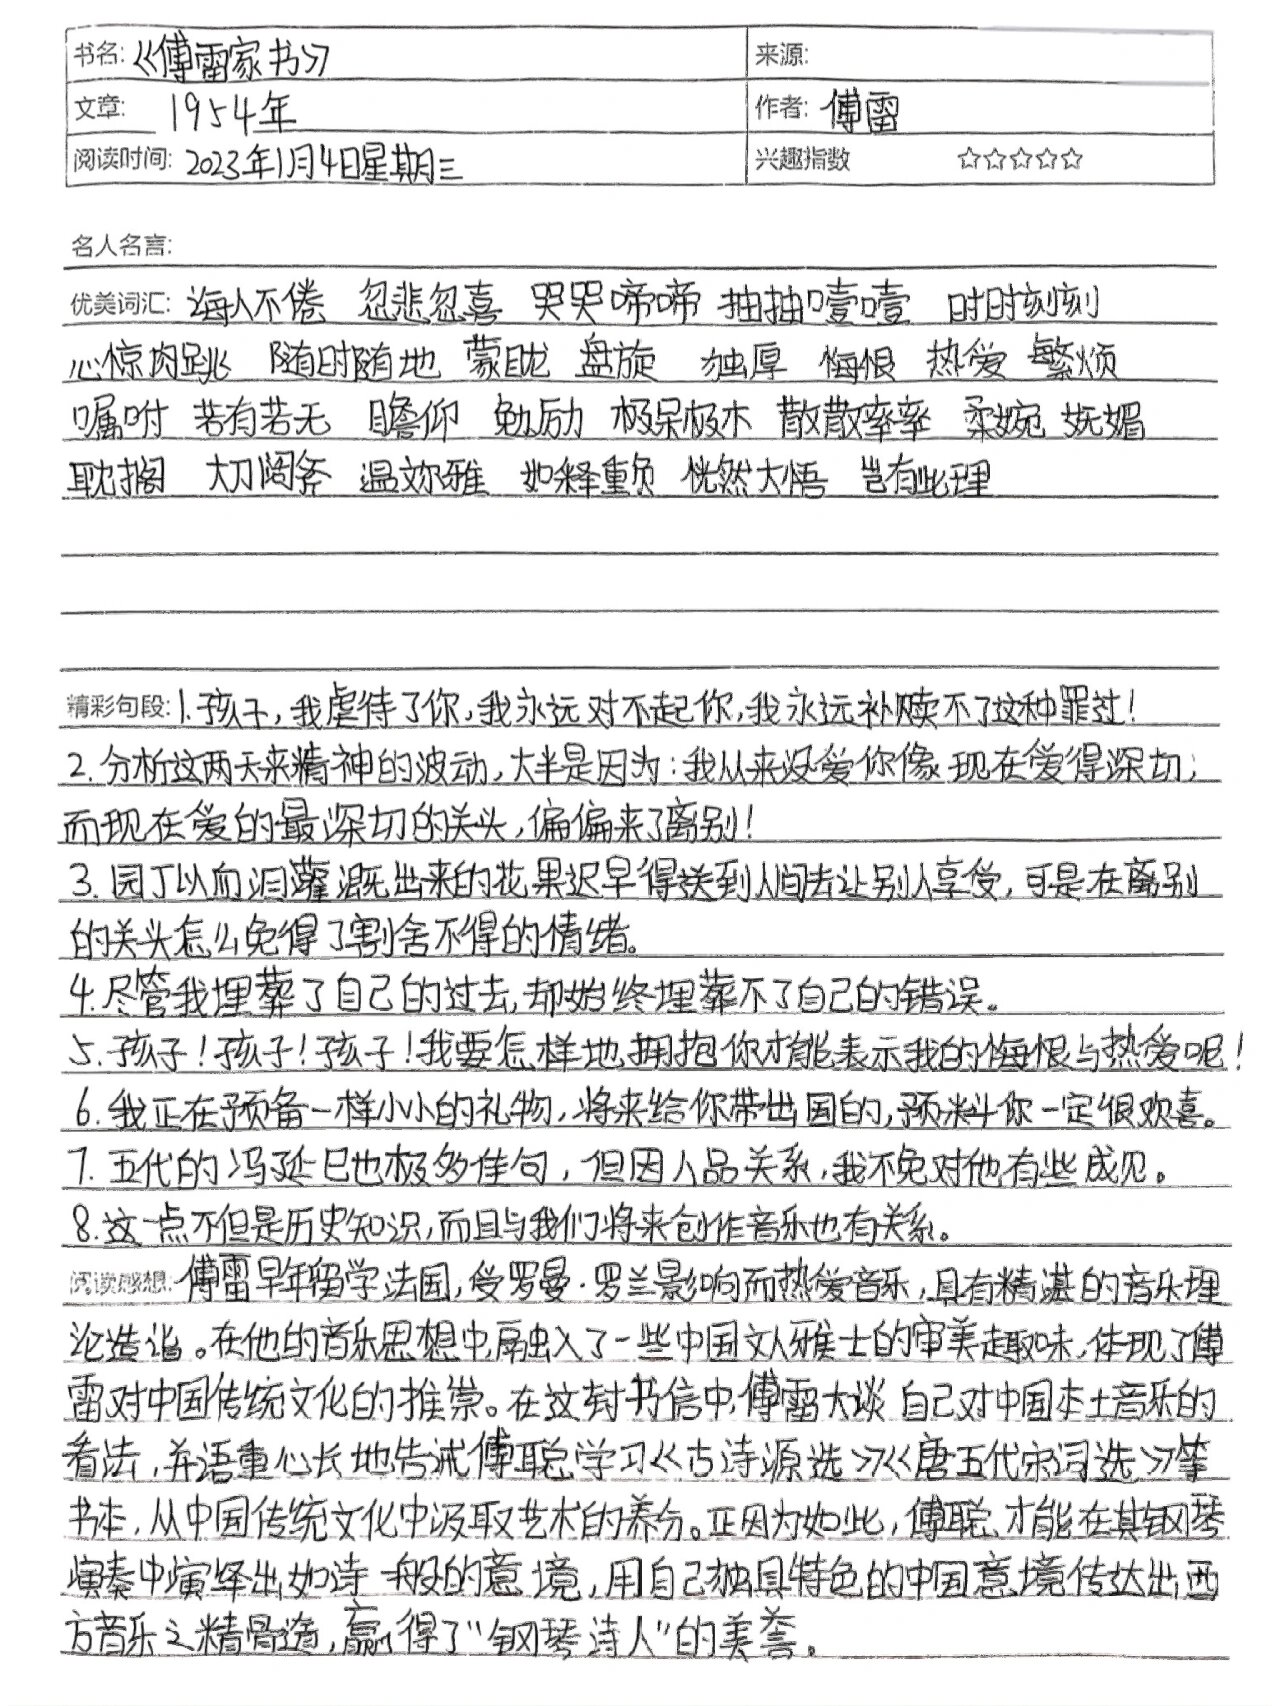 书名:《傅雷家书》 来源:
文章: 1954年 作者: 傅雷
阅读时间: 2023年1月4日星期三 兴趣指数 ☆☆☆☆☆
名人名言:
优美词汇: 诲人不倦 忽悲忽喜 哭哭啼啼 抽抽噎噎 时时刻刻
心惊肉跳 随时随地 蒙眬 盘旋 独厚 悔恨 热爱 繁烦
嘱咐 若有若无 瞻仰 勉励 极呆极木 散散率率 柔婉 妩媚
耽搁 大刀阔斧 温文弥雅 如释重负 恍然大悟 岂有此理
精彩句段: 1.孩子,我虐待了你,我永远对不起你,我永远补赎不了这种罪过!
2.分析这两天来精神的波动,大半是因为:我从来没爱你像现在爱得深切;
而现在爱的最深切的关头,偏偏来了离别!
3.园丁以血泪灌溉出来的花果迟早得送到人间去让别人享受,可是在离别
的关头怎么免得了割舍不得的情绪。
4.尽管我埋葬了自己的过去,却始终埋葬不了自己的错误。
5.孩子!孩子!孩子!我要怎样地拥抱你才能表示我的悔恨与热爱呢!
6.我正在预备一样小小的礼物,将来给你带出国的,预料你一定很欢喜。
7.五代的冯延巳也极多佳句,但因人品关系,我不免对他有些成见。
8.这一点不但是历史知识,而且与我们将来创作音乐也有关系。
阅读感想: 傅雷早年留学法国,受罗曼·罗兰影响而热爱音乐,具有精湛的音乐理
论造诣。在他的音乐思想中,融入了一些中国文人雅士的审美趣味,体现了傅
雷对中国传统文化的推崇。在这封书信中,傅雷大谈自己对中国本土音乐的
看法,并语重心长地告诫傅聪学习《古诗源选》《唐五代宋词选》等
书本,从中国传统文化中汲取艺术的养分。正因为如此,傅聪才能在其钢琴
演奏中演绎出如诗一般的意境,用自己独具特色的中国意境传达出西
方音乐之精骨遒,赢得了“钢琴诗人”的美誉。